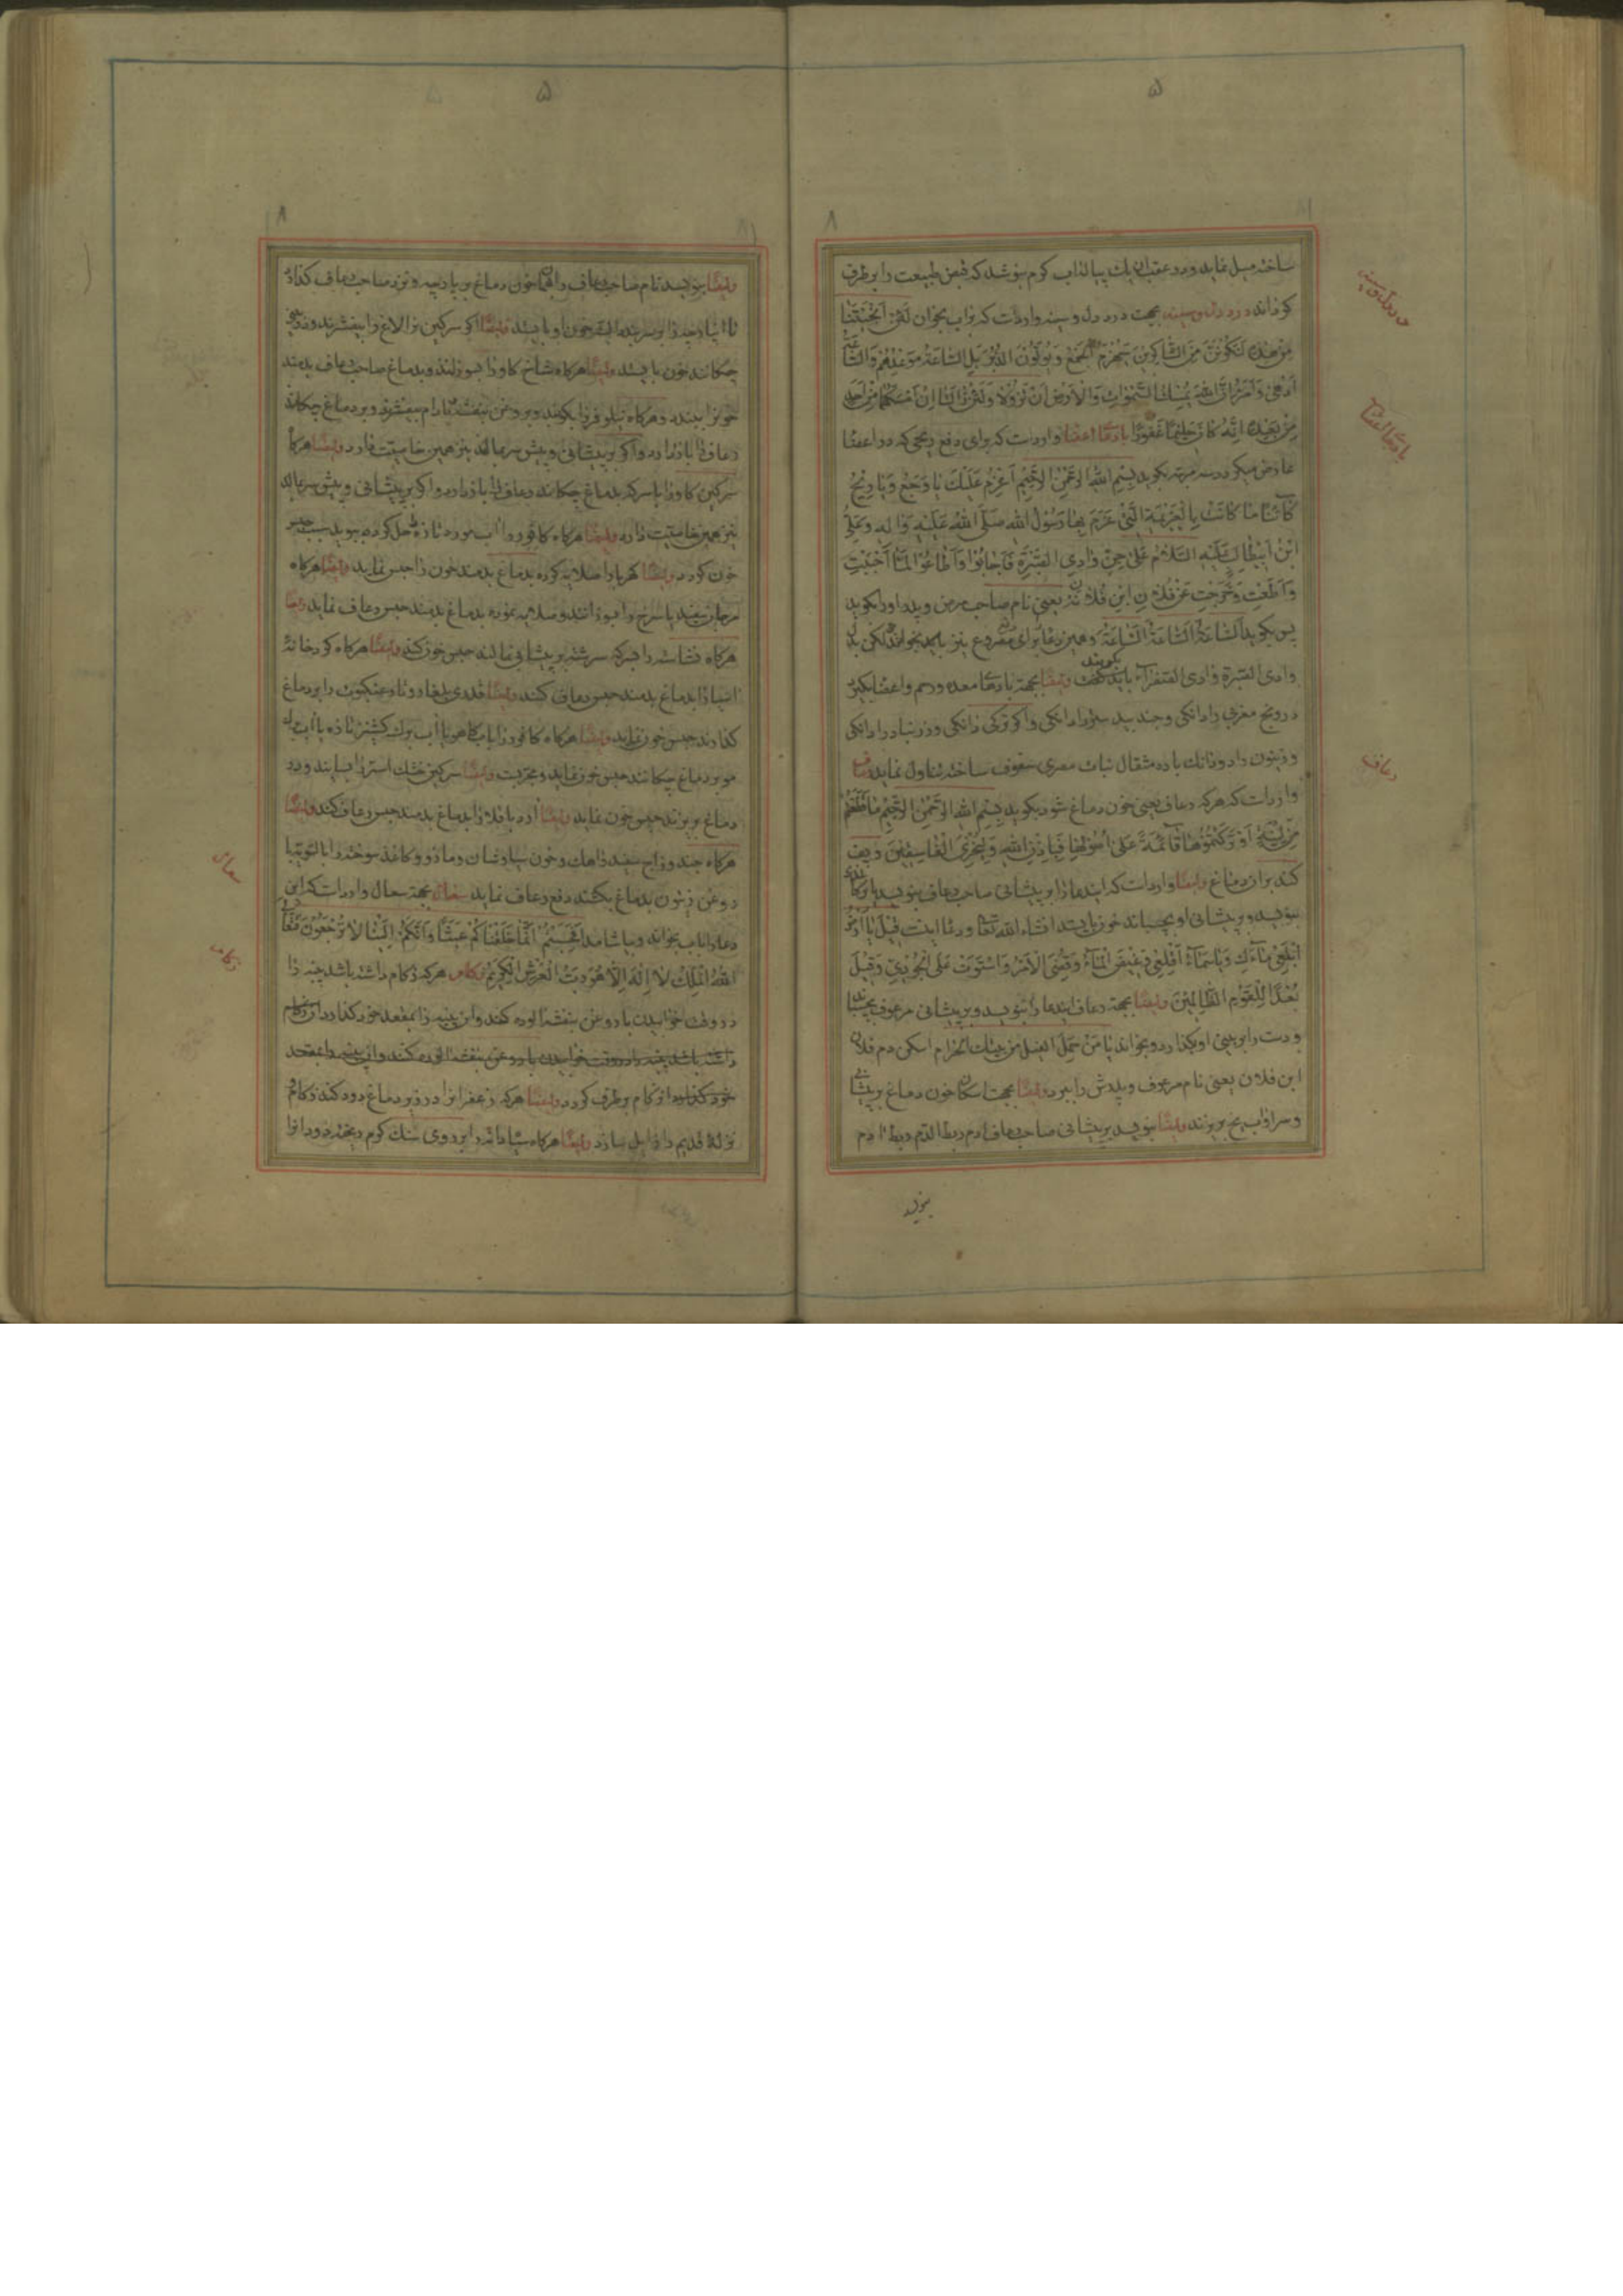 ۵
۸
ساخته میل نماید و در عقب ان یك پیاله اب کرم بنوشد که قبض طبیعت را برطرف
کرداند درد دل و سینه بجهت درد دل و سینه واردات که براب بخوان لَئِنْ اَنْجَيْتَنَا
مِنْ هٰذِهِ لَنَكُونَنَّ مِنَ الشَّاكِرِينَ سَيُهْزَمُ الْجَمْعُ وَيُوَلُّونَ الدُّبُرَ بَلِ السَّاعَةُ مَوْعِدُهُمْ وَالسَّاعَةُ
اَدْهٰى وَاَمَرُّ اِنَّ اللهَ يُمْسِكُ السَّمٰوَاتِ وَالْاَرْضَ اَنْ تَزُولَا وَلَئِنْ زَالَتَا اِنْ اَمْسَكَهُمَا مِنْ اَحَدٍ
مِنْ بَعْدِهِ اِنَّهُ كَانَ حَلِيمًا غَفُورًا بادهٔا اعضا واردات که برای دفع ریحی که در اعضا
عارض میکردد سه مرتبه بکوید بِسْمِ اللهِ الرَّحْمٰنِ الرَّحِيمِ اَعْزِمُ عَلَيْكَ يَا وَجَعُ وَيَا رِيحُ
كَائِنًا مَا كَانَتْ بِالْعَزِيمَةِ الَّتِي عَزَمَ بِهَا رَسُولُ اللهِ صَلَّى اللهُ عَلَيْهِ وَالِهِ وَعَلِيُّ
ابْنُ اَبِيطَالِبٍ عَلَيْهِ السَّلَامُ عَلٰى جِنِّ وَادِي الصَّبْرَةِ فَاَجَابُوا وَاَطَاعُوا لَمَّا اَجَبْتِ
وَاَطَعْتِ وَخَرَجْتِ عَنْ فُلَانِ ابْنِ فُلَانَةٍ یعنی نام صاحب مرض و پدر او را بکوید
پس بکوید اَلسَّاعَةَ اَلسَّاعَةَ اَلسَّاعَةَ وهمین دعا برای مصروع نیز باید بخواند لکن بدل
وادی الصبرة وادی الصفراء باید کفت وایضًا بجهة بادهٔا معده ورحم واعضا بکیرد
درونج مغربی را دانکی وجند بید ستر را دانکی واکر ترکی دانکی وزرنباد را دانکی
با ده مثقال نبات مصری سفوف ساخته تناول نماید رعاف
واردات که هرکه رعاف یعنی خون دماغ شود بکوید بِسْمِ اللهِ الرَّحْمٰنِ الرَّحِيمِ مَا قَطَعْتُمْ
مِنْ لِينَةٍ اَوْ تَرَكْتُمُوهَا قَائِمَةً عَلٰى اُصُولِهَا فَبِاِذْنِ اللهِ وَلِيُخْزِيَ الْفَاسِقِينَ و پف
کند بران دماغ وایضًا واردات که ایندعا را بر پیشانی صاحب رعاف بنویسد
بنویسد و بر پیشانی او بچسباند خون بایستد انشاء الله تعا ودعا اینست قِيلَ يَا اَرْضُ
ابْلَعِي مَاءَكِ وَيَا سَمَاءُ اَقْلِعِي وَغِيضَ الْمَاءُ وَقُضِيَ الْاَمْرُ وَاسْتَوَتْ عَلَى الْجُودِيِّ وَقِيلَ
بُعْدًا لِلْقَوْمِ الظَّالِمِينَ وایضًا بجهة رعاف ایندعا را بنویسد و بر پیشانی مرعوف بچسباند
ودست را بر بینی او بکذارد و بخواند يَا مَنْ حَمَلَ الْفِيلَ مِنْ بَيْتِكَ الْحَرَامِ اسکن دم فلان
ابن فلان یعنی نام مرعوف و پدرش را ببرد وایضًا بجهت اسکان خون دماغ بر پیشانی
وسر او اب یخ بریزند وایضًا بنویسد بر پیشانی صاحب رعاف
بنویسد
درد دل و سینه
بادهٔا اعضا
رعاف
۵
۸
وایضًا بنویسد نام صاحب رعاف را بهمان خون دماغ بر پارچه و نزد صاحب رعاف کذارد
تا ان پارچه را بر سر بندد البته خون او بایستد وایضًا اکر سرکین تر الاغ را بیفشرند
چکانند خون بایستد وایضًا هرکاه شاخ کاو را بسوزانند و بدماغ صاحب رعاف بدمند
خونرا ببندد وهرکاه نیلوفر را بکوبند
رعاف را باز دارد واکر بر پیشانی و پیش سر بمالند نیز همین خاصیت دارد وایضًا هرکاه
سرکین کاو را با سرکه بدماغ چکانند رعاف را باز دارد واکر بر پیشانی و پیش سر بمالند
نیز همین خاصیت دارد وایضًا هرکاه کافور در اب مورد تازه حل کرده ببوید سبب حبس
خون کردد وایضًا کهربا را صلایه کرده بدماغ بدمند خون را حبس نماید وایضًا هرکاه
مرجان سفید یا سرخ را بسوزانند و صلایه نموده بدماغ بدمند حبس رعاف نماید وایضًا
هرکاه نشاسته را بسرکه سرشته بر پیشانی بمالند حبس خون کند وایضًا هرکاه کرد خانهٔ
اسیا را بدماغ بدمند حبس رعاف کند وایضًا قدری تار عنکبوت را بر دماغ
کذارند حبس خون نماید وایضًا هرکاه کافور را با اب کاهو یا اب برك کشنیز تازه یا اب
مو بر دماغ چکانند حبس خون نماید ومجربست وایضًا سرکین خشك استر را بسایند و در
دماغ بریزند حبس خون نماید وایضًا ارد باقلا را بدماغ بدمند حبس رعاف کند وایضًا
هرکاه وزاج سفید و اهك وخون سیاوشان ومازو وکاغذ سوخته را بالسویه با
روغن زیتون بدماغ بکشند دفع رعاف نماید سعال بجهة سعال واردات که این
دعا را باب بخواند و بیاشامد اَفَحَسِبْتُمْ اَنَّمَا خَلَقْنَاكُمْ عَبَثًا وَاَنَّكُمْ اِلَيْنَا لَا تُرْجَعُونَ فَتَعَالَى
اللهُ الْمَلِكُ لَا اِلٰهَ اِلَّا هُوَ رَبُّ الْعَرْشِ الْكَرِيمِ زکام هرکه زکام داشته باشد پنبه را
در وقت خوابیدن با روغن بنفشه الوده کند وان پنبه را بمقعد خود کذارد
داشته باشد پنبه را در وقت خوابیدن با روغن بنفشه الوده کند وان پنبه را بمقعد
خود کذارد از زکام برطرف کردد وایضًا هرکه زعفرانرا در زیر دماغ دود کند زکام و
نزلهٔ قدیم را زایل سازد وایضًا هرکاه سیاه دانه را بر روی سنك کرم ریخته
سعال
زکام